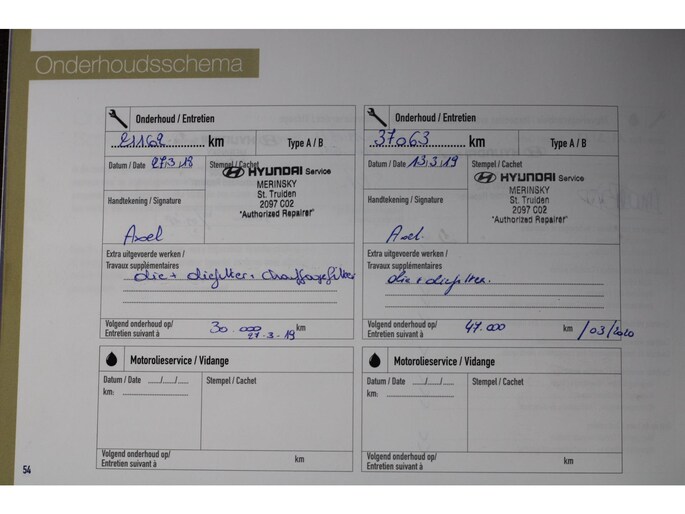 Onderhoudsschema
Onderhoud / Entretien
21162 km Type A / B
Datum / Date 27.3.18 Stempel / Cachet
HYUNDAI Service
MERINSKY
St. Truiden
2097 C02
"Authorized Repairer"
Handtekening / Signature
Axel
Extra uitgevoerde werken /
Travaux supplémentaires
olie + oliefilter + chauffagefilter
Volgend onderhoud op/
Entretien suivant à 30.000 km
27-3-19
Motorolieservice / Vidange
Datum / Date ..../..../.... Stempel / Cachet
km:
Volgend onderhoud op/
Entretien suivant à km
Onderhoud / Entretien
37063 km Type A / B
Datum / Date 13.3.19 Stempel / Cachet
HYUNDAI Service
MERINSKY
St. Truiden
2097 C02
"Authorized Repairer"
Handtekening / Signature
Axel.
Extra uitgevoerde werken /
Travaux supplémentaires
olie + oliefilter.
Volgend onderhoud op/
Entretien suivant à 47.000 km /03/2020
Motorolieservice / Vidange
Datum / Date ..../..../.... Stempel / Cachet
km:
Volgend onderhoud op/
Entretien suivant à km
54